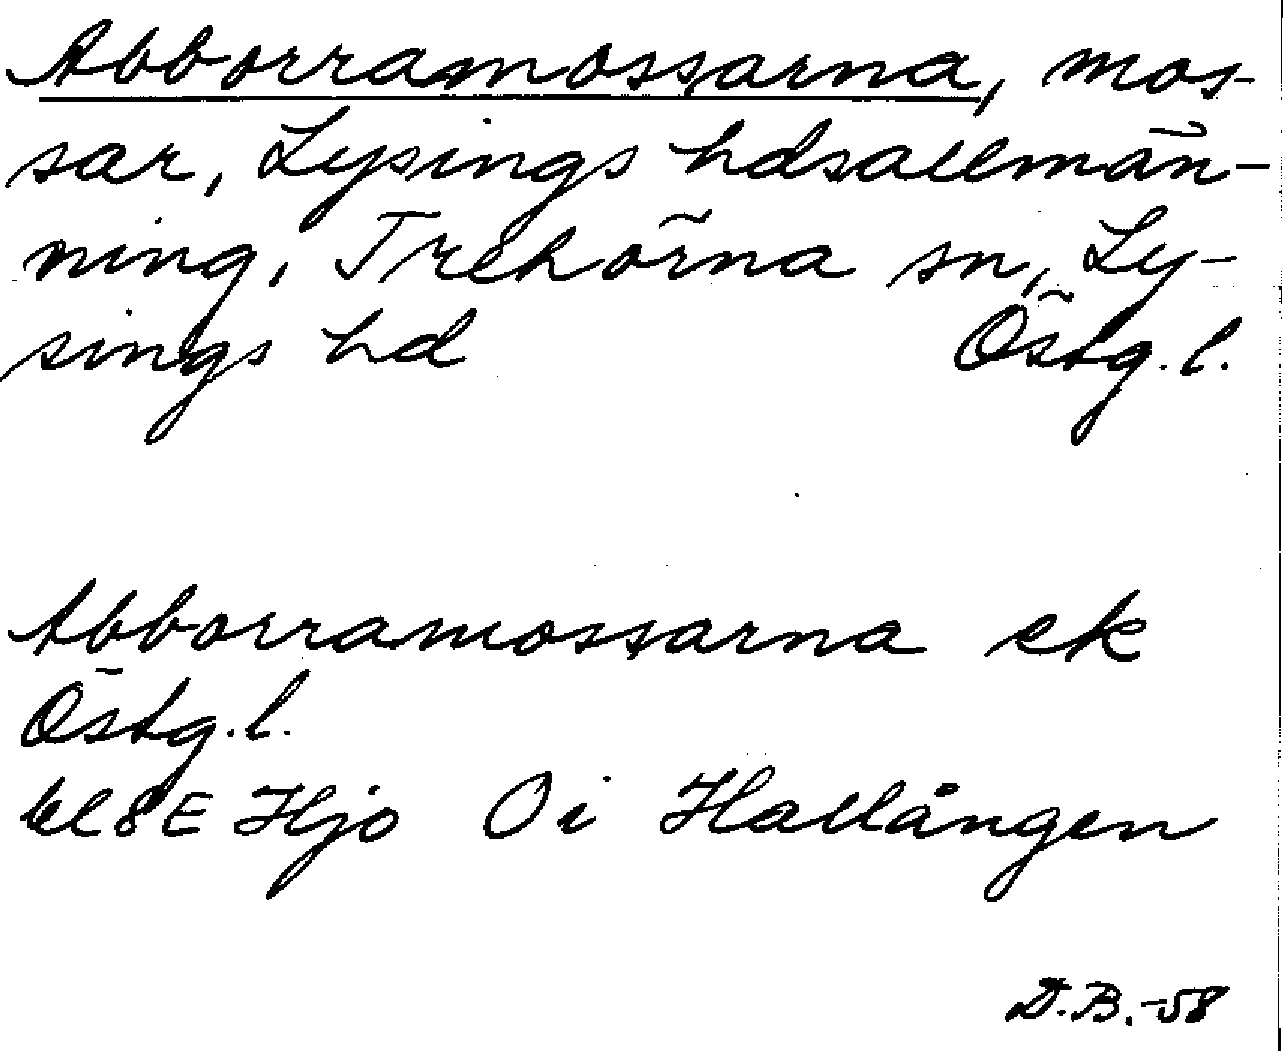 Abborramossarna, mos-
sar, Lysings hdsallmän-
ning, Trehörna sn, Ly-
sings hd Östg. l.
Abborramossarna ek
Östg. l.
bl 8E Hjo Oi Hallången
D.B.-58